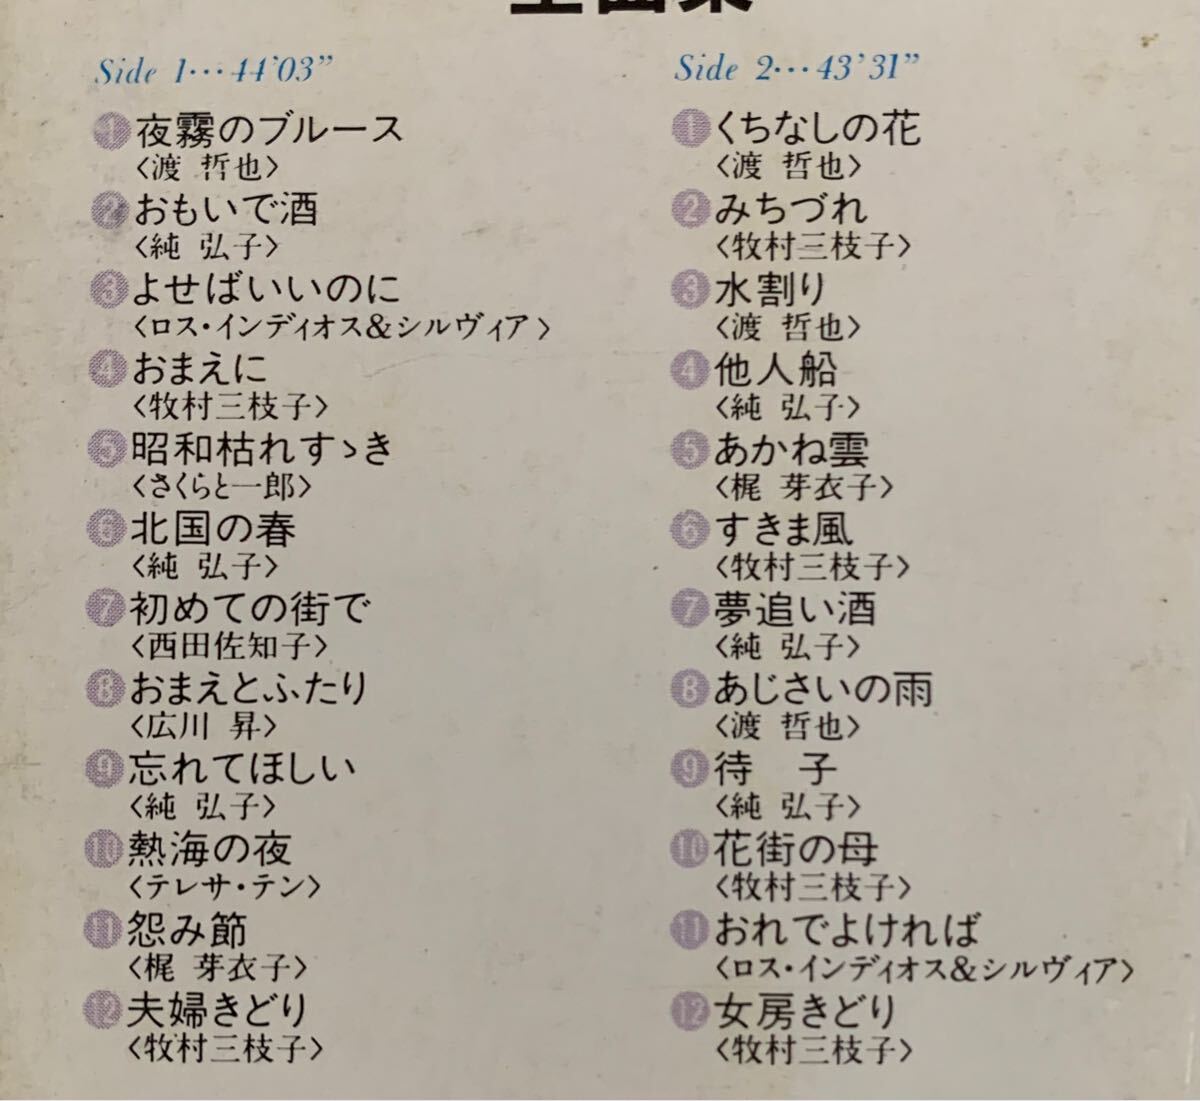 全曲集
Side 1…44'03"
1 夜霧のブルース
〈渡 哲也〉
2 おもいで酒
〈純 弘子〉
3 よせばいいのに
〈ロス・インディオス&シルヴィア〉
4 おまえに
〈牧村三枝子〉
5 昭和枯れすゝき
〈さくらと一郎〉
6 北国の春
〈純 弘子〉
7 初めての街で
〈西田佐知子〉
8 おまえとふたり
〈広川 昇〉
9 忘れてほしい
〈純 弘子〉
10 熱海の夜
〈テレサ・テン〉
11 怨み節
〈梶 芽衣子〉
12 夫婦きどり
〈牧村三枝子〉
Side 2…43'31"
1 くちなしの花
〈渡 哲也〉
2 みちづれ
〈牧村三枝子〉
3 水割り
〈渡 哲也〉
4 他人船
〈純 弘子〉
5 あかね雲
〈梶 芽衣子〉
6 すきま風
〈牧村三枝子〉
7 夢追い酒
〈純 弘子〉
8 あじさいの雨
〈渡 哲也〉
9 待 子
〈純 弘子〉
10 花街の母
〈牧村三枝子〉
11 おれでよければ
〈ロス・インディオス&シルヴィア〉
12 女房きどり
〈牧村三枝子〉